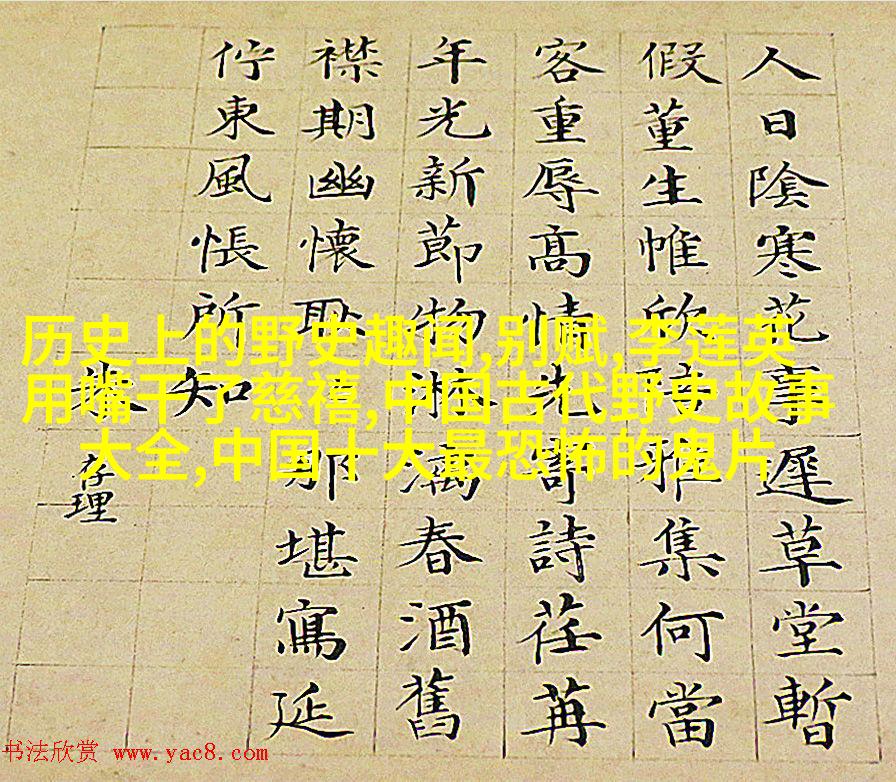 人日陰寒花事遲草堂暫
假董生帷欣雅集何當
客重辱高情先寄詩荏苒
年光新節物淋漓春酒舊
襟期幽懷耿那堪寫延
佇東風悵所知
存理
历史上的野史趣闻,别赋,李莲英
用嘴干了慈禧,中国古代野史故事
大全,中国十大最恐怖的鬼片
书法欣赏 www.yac8.com